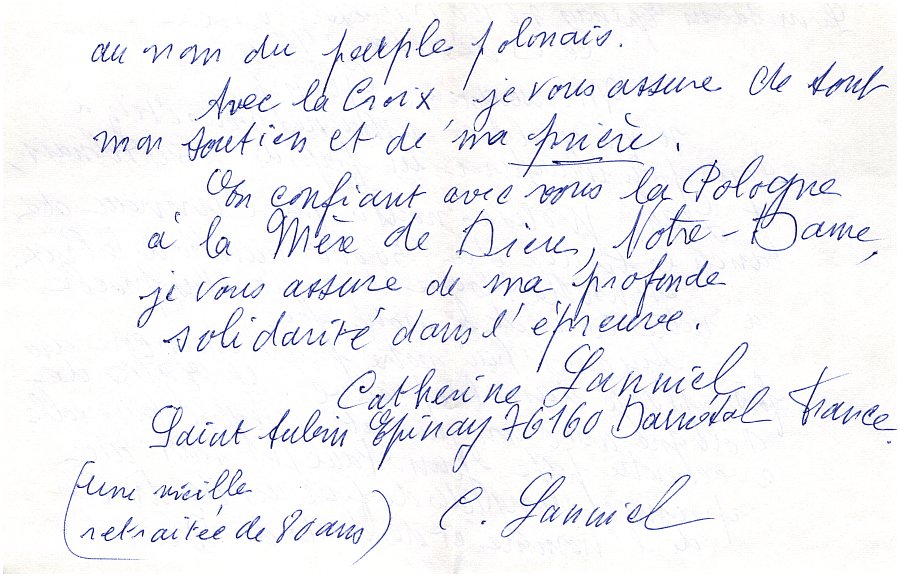 au nom du peuple polonais.
Avec la Croix je vous assure de tout
mon soutien et de ma prière.
En confiant avec vous la Pologne
à la Mère de Dieu, Notre-Dame,
je vous assure de ma profonde
solidarité dans l'épreuve.
Catherine Lanniel
Saint Aubin Epinay 76160 Darnétal France.
(une vieille
retraitée de 80 ans)
C. Lanniel